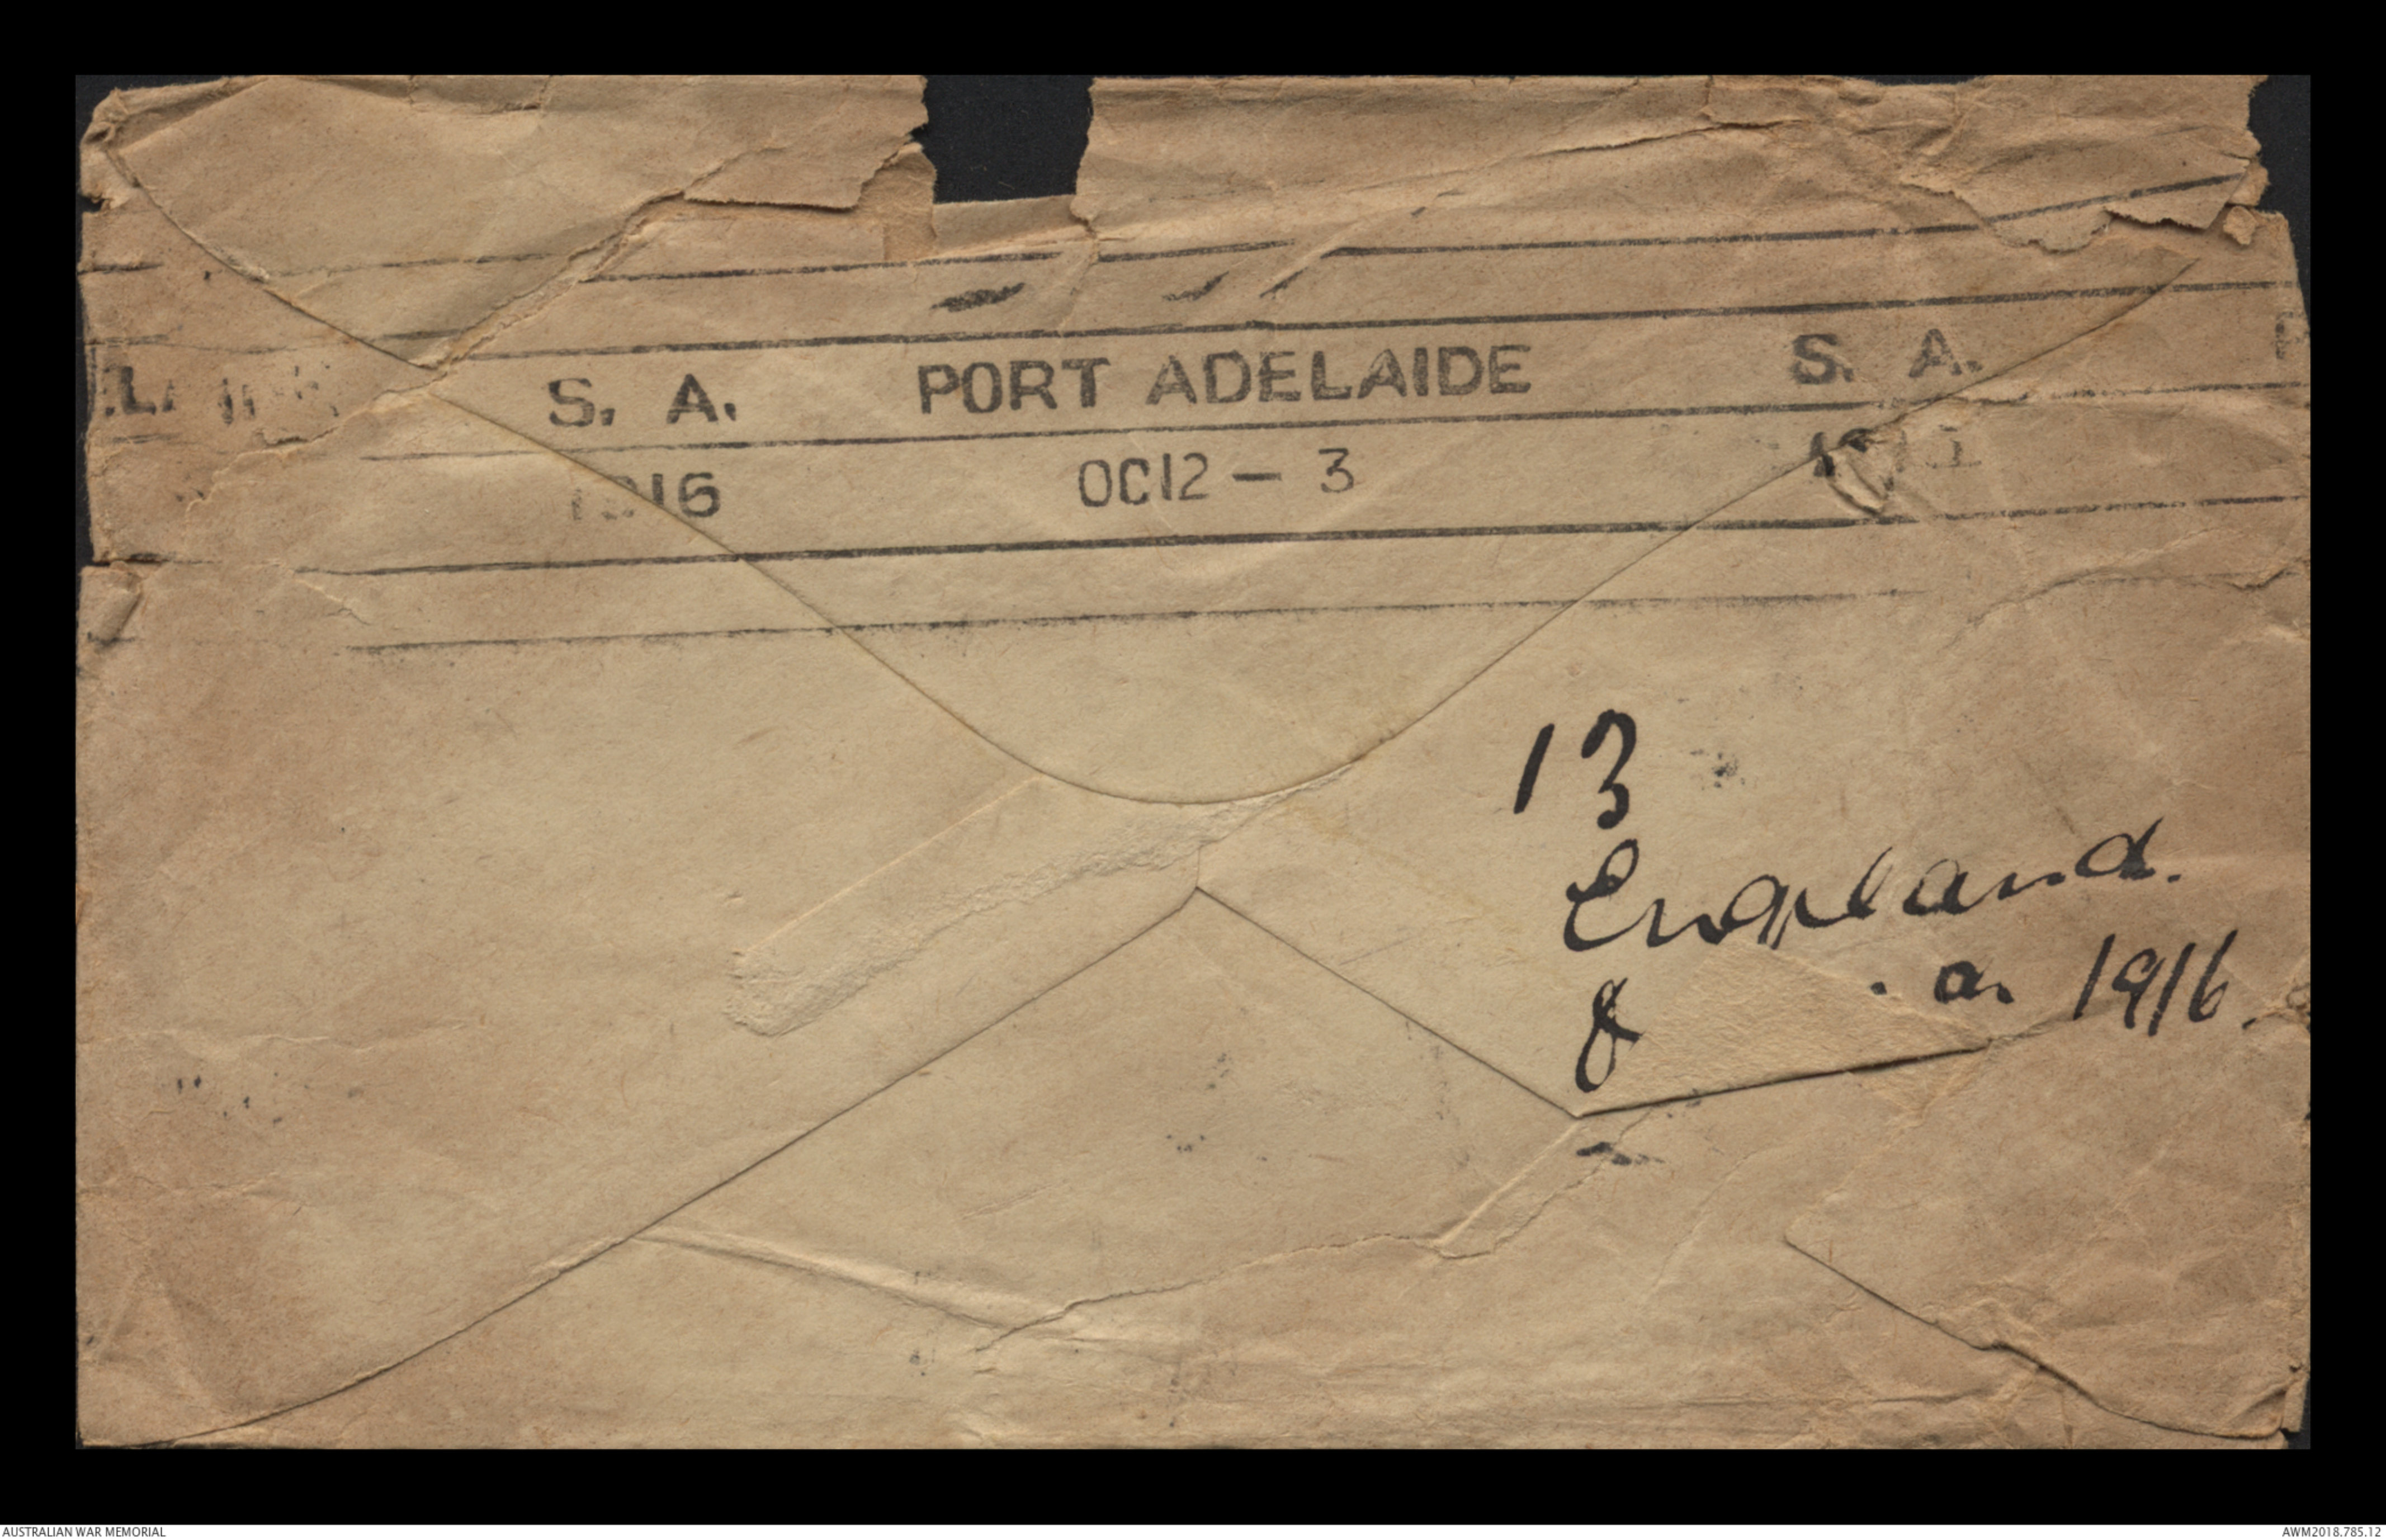 S. A. PORT ADELAIDE S. A.
1916 OC12 — 3
13
England.
1916.
AUSTRALIAN WAR MEMORIAL
AWM2018.785.12